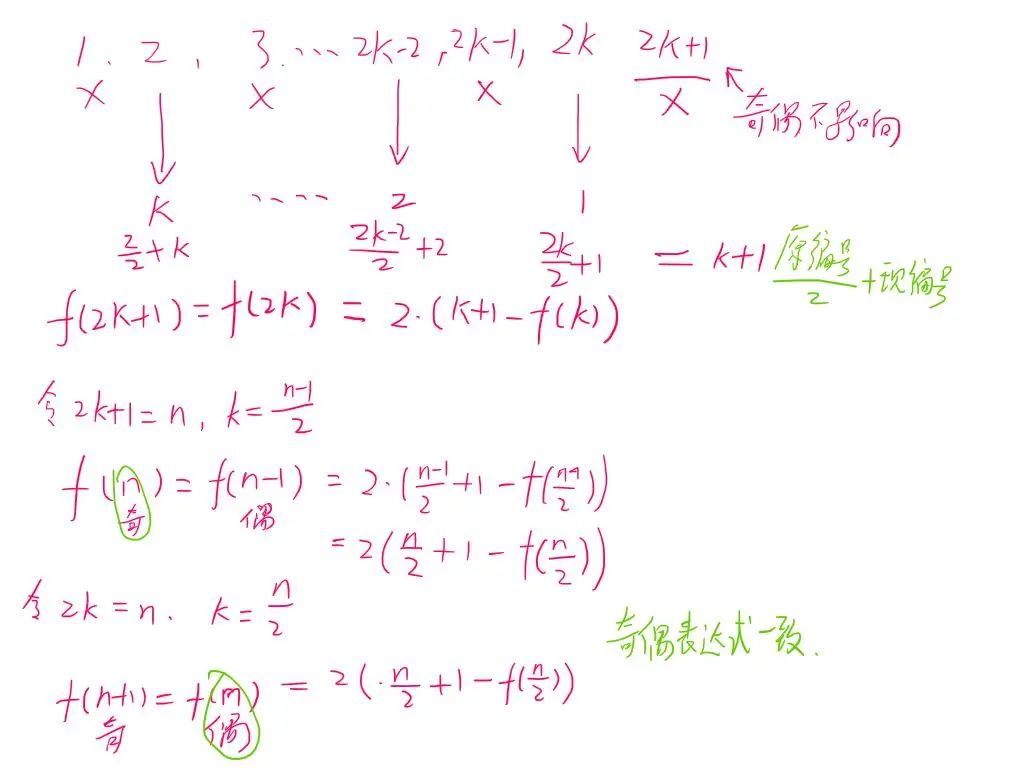 1、2、3.…2k-2,2k-1,2k 2k+1
x x x x 奇偶不影响
k …… 2 1
2/2+k (2k-2)/2+2 2k/2+1 = k+1 原编号/2+现编号
f(2k+1)=f(2k)=2·(k+1-f(k))
令2k+1=n,k=(n-1)/2
f(n)=f(n-1)=2·((n-1)/2+1-f((n-1)/2))
奇 偶
=2(n/2+1-f(n/2))
令2k=n.k=n/2
奇偶表达式一致.
f(n+1)=f(n)=2(·n/2+1-f(n/2))
奇 偶